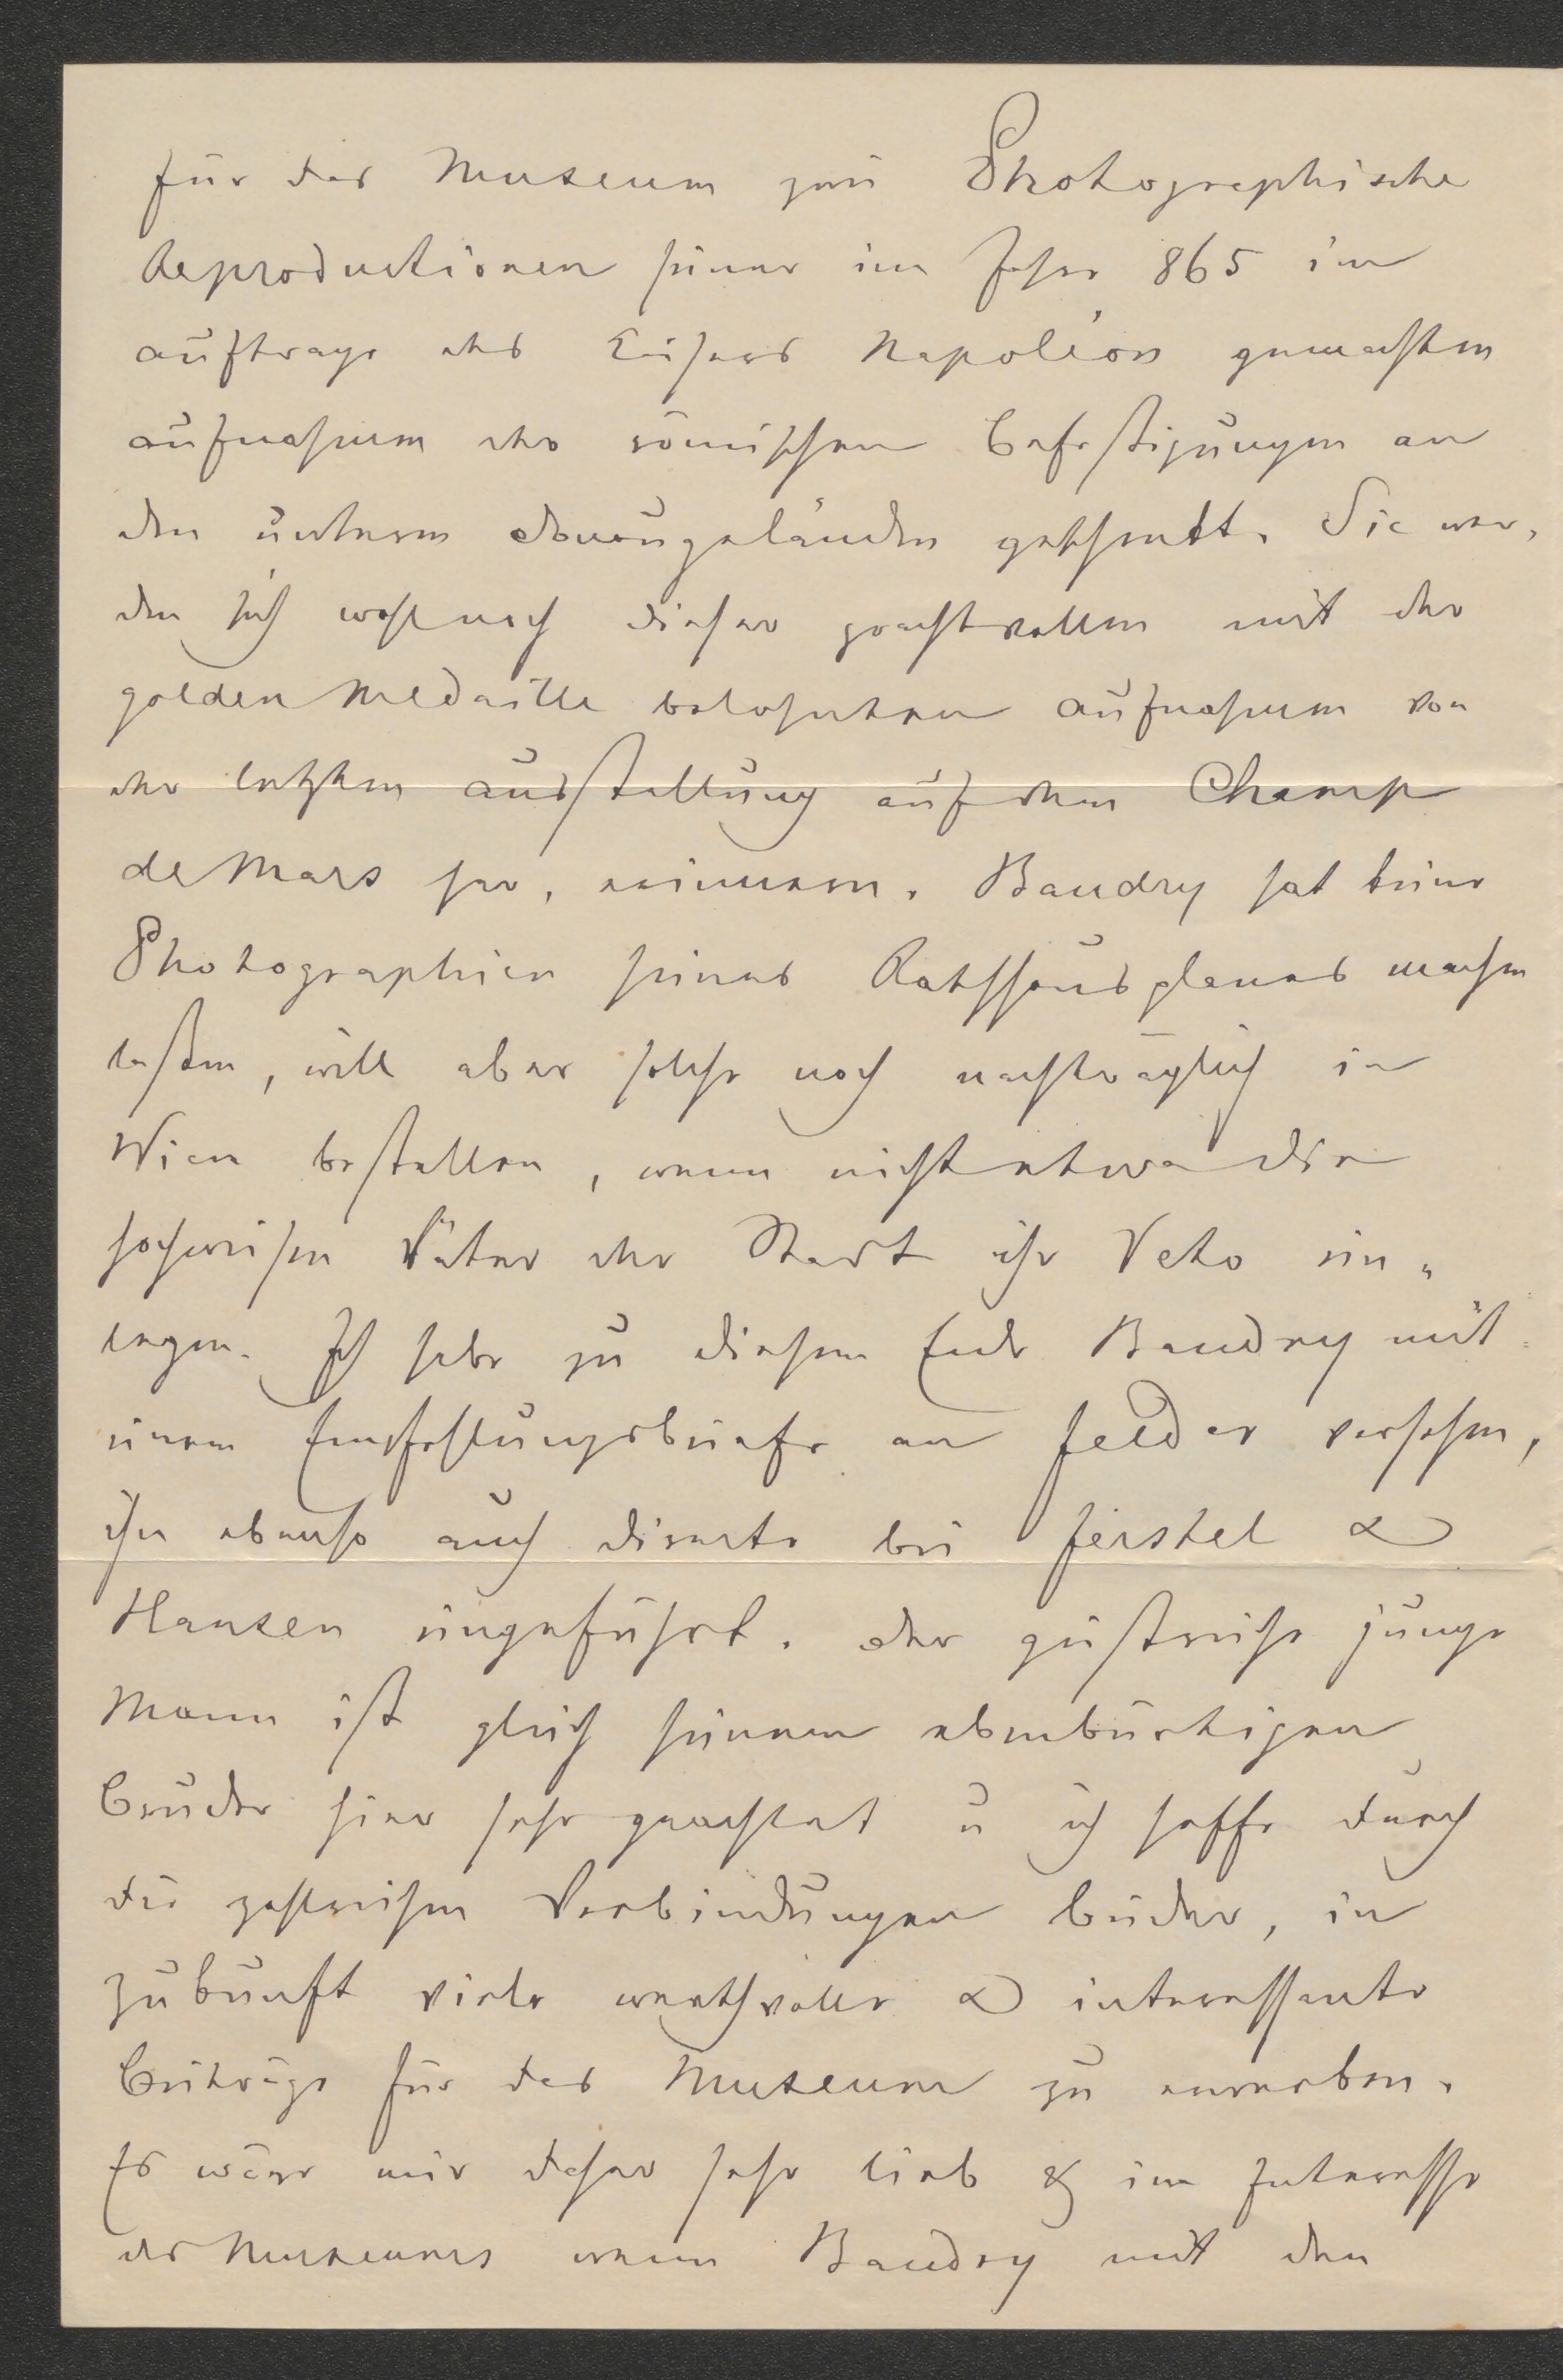 für das Museum zwei Photographische
Reproductionen seiner im Jahre 865 im
Auftrage des Kaisers Napoléon gemachten
Aufnahmen der römischen Befestigungen an
den unteren Donaugeländen geschenkt. Sie wer-
den sich wohl noch dieser prachtvollen mit der
golden Medaille belohnten Aufnahmen von
der letzten Ausstellung auf dem Champ
de Mars her, erinnern. Baudry hat keine
Photographien seines Rathhausplanes machen
laßen, will aber solche noch nachträglich in
Wien bestellen, wenn nicht etwa die
hochweisen Väter der Stadt ihr Veto ein-
legen. Ich habe zu diesem Ende Baudry mit
einem Empfehlungsbriefe an Felder versehen,
ihn ebenso auch directe bei Ferstel &
Hansen eingeführt. Der geistreiche junge
Mann ist gleich seinem ebenbürtigen
Bruder hier sehr geachtet u ich hoffe durch
die zahlreichen Verbindungen beider, in
Zukunft viele werthvolle & interessante
Beiträge für das Museum zu erwerben.
Es wäre mir daher sehr lieb & im Interesse
des Museums wenn Baudry mit den